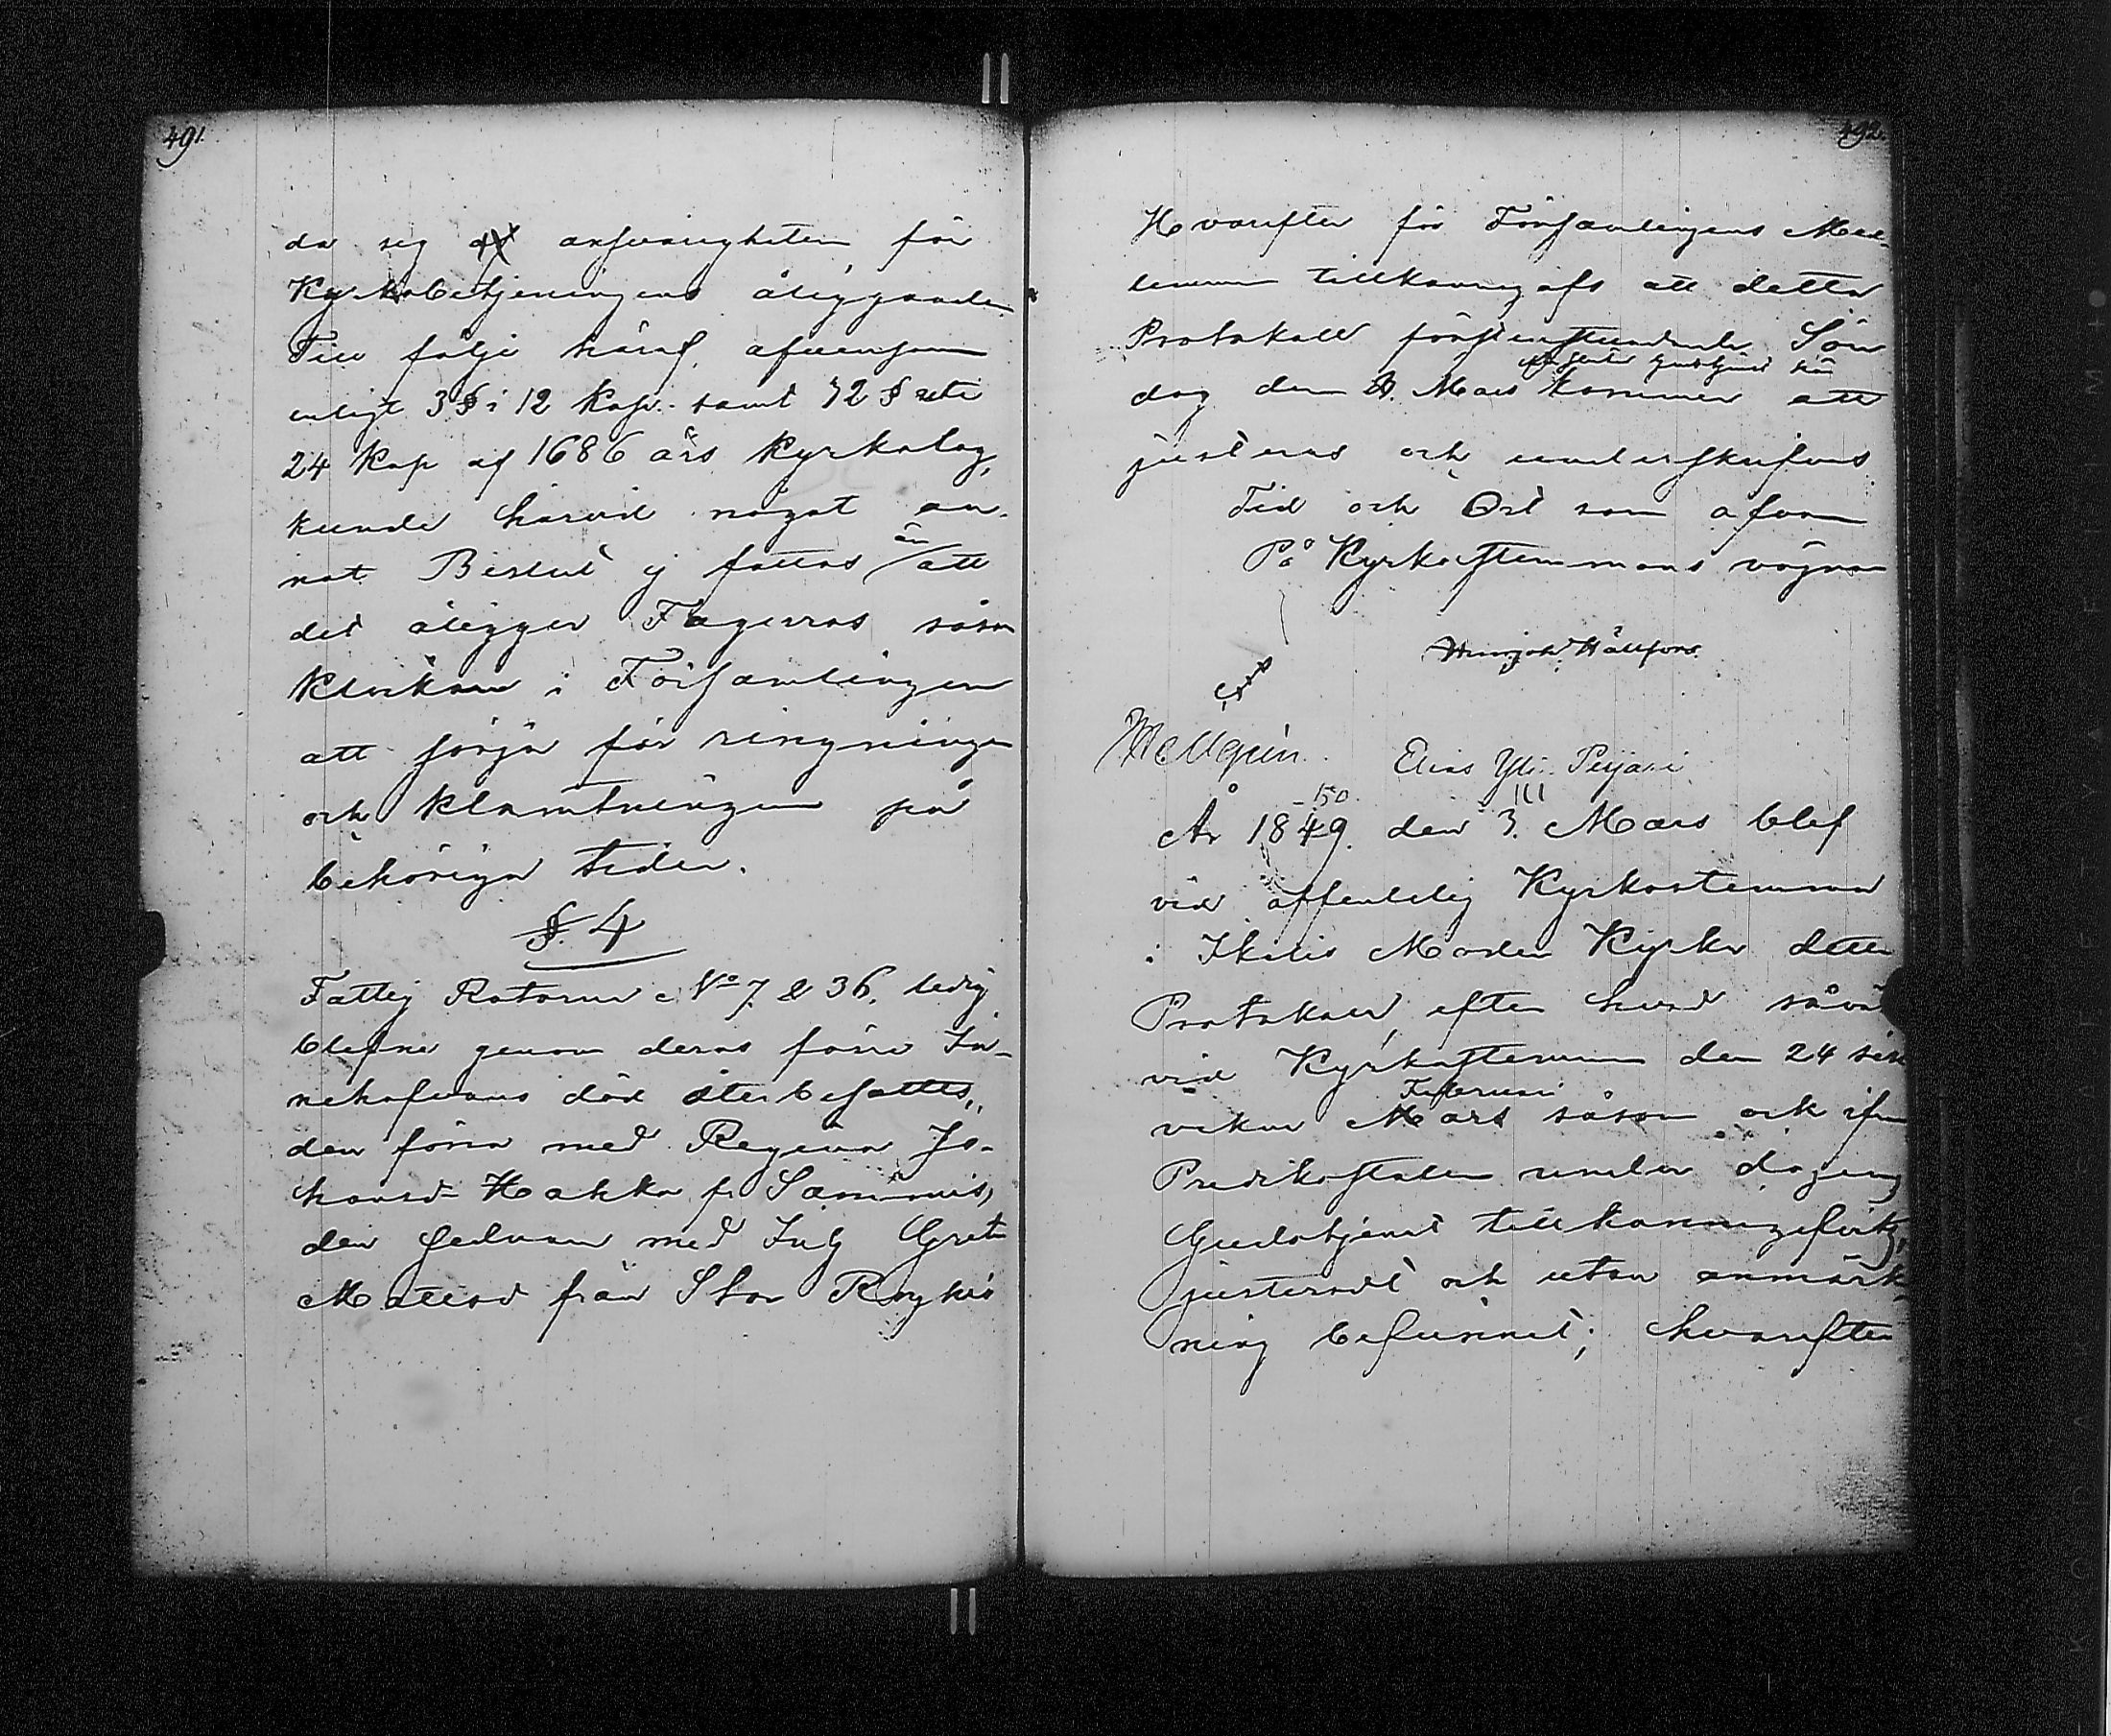 491.
da sig ansvarigheten för
Kyrkobetjeningens åliggande.
Till följe häraf, äfvensom
enligt 3 § i 12 Kap. samt 32 § uti
24 Kap af 1686 års Kyrkolag,
kunde härvid något an-
nat Beslut ej fattas än att
det åligger Fagerros såsom
Klockare i Församlingen
att sörja för ringningen
och klämtningen på
behöriga tider.
§. 4
Fattig Rotorna No 7. & 36. ledig
blefne genom deras förre In-
nehafvares död återbesattes,
den förra med Regina Jo-
hansd. Hakka fr.
den sednare med Ink Greta
Mattsd från Stor Röyhiö
492.
Hvarefter för Församlingens Med-
lemmar tillkännagafs att detta
Protokoll förstinstundande Sön
efter slutad Gudstjenst här
dag den Mars kommer att
justeras och underskrifvas.
Tid och Ort som ofvan
På Kyrkostämmans vägnar
Hällfors.
Elias Yli Peijari
150. III
År 1849. den 3. Mars blef
vid offentelig Kyrkostemma
i Ikalis Moder Kyrka detta
Protokoll, efter hvad såväl
vid Kyrkostemman den 24 sist
Februari
vekne Mars såsom ock ifrån
Predikostolen under dagens
Gudstjenst tillkännagifvits,
justeradt och utan anmärk-
ning befunnet; hvarefter